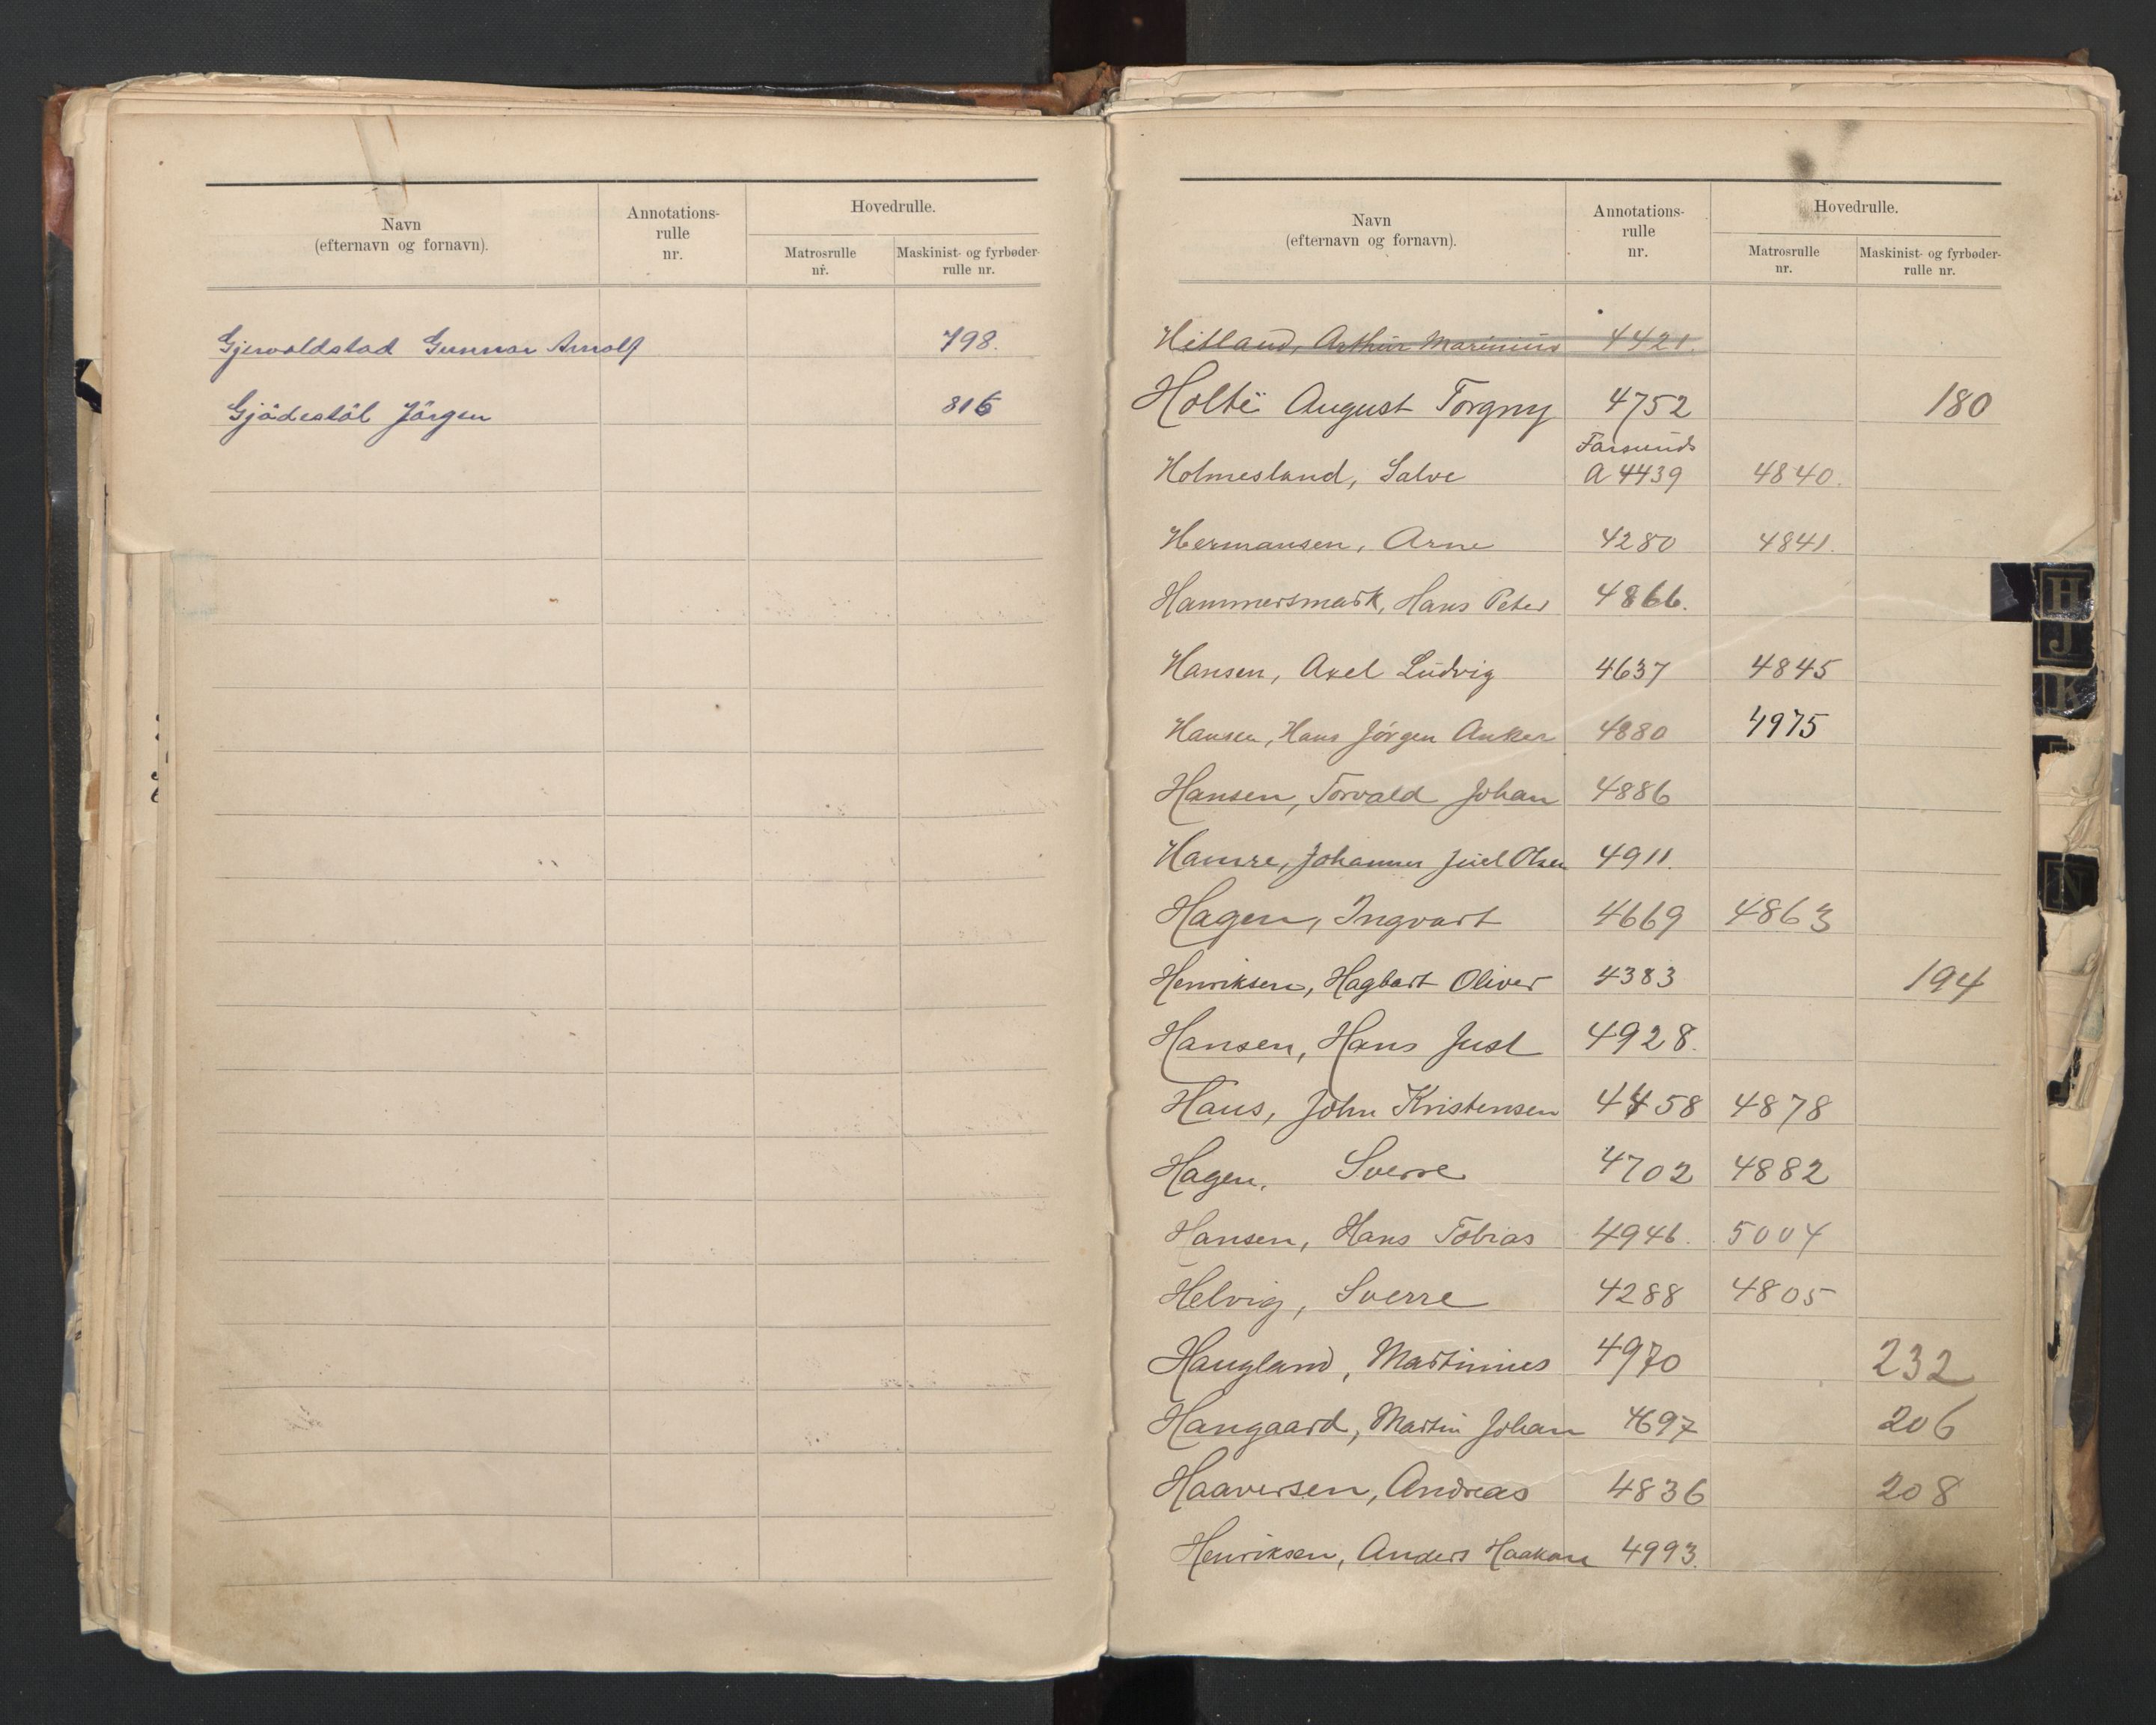 Navn
(efternavn og fornavn).
Annotations-
rulle
nr.
Hovedrulle.
Matrosrulle
nr.
Maskinist- og fyrbøder-
rulle nr.
Gjervoldstad Gunnar Arnolf 798.
Gjödestöl Jörgen 816
Navn
(efternavn og fornavn).
Annotations-
rulle
nr.
Hovedrulle.
Matrosrulle
nr.
Maskinist- og fyrbøder-
rulle nr.
Hitland, Arthur Marinius 4421.
Holte August Torgny 4752 180
Farsunds
Holmesland, Salve A 4439 4840.
Hermansen, Arne 4280 4841.
Hammersmark, Hans Peter 4866.
Hansen, Axel Ludvig 4637 4845
Hansen, Hans Jörgen Anker 4880 4975
Hansen, Torvald Johan 4886
Hamre, Johannes Juel Olsen 4911.
Hagen, Ingvart 4669 4863
Henriksen, Hagbart Oliver 4383 194
Hansen, Hans Just 4928.
Haus, John Kristensen 4458 4878
Hagen, Sverre 4702 4882
Hansen, Hans Tobias 4946. 5004
Helvig, Sverre 4288 4805
Haugland, Martinius 4970 232
Haugaard, Martin Johan 4697 206
Haaversen, Andreas 4836 208
Henriksen, Anders Haakon 4993.
H
J
K
N